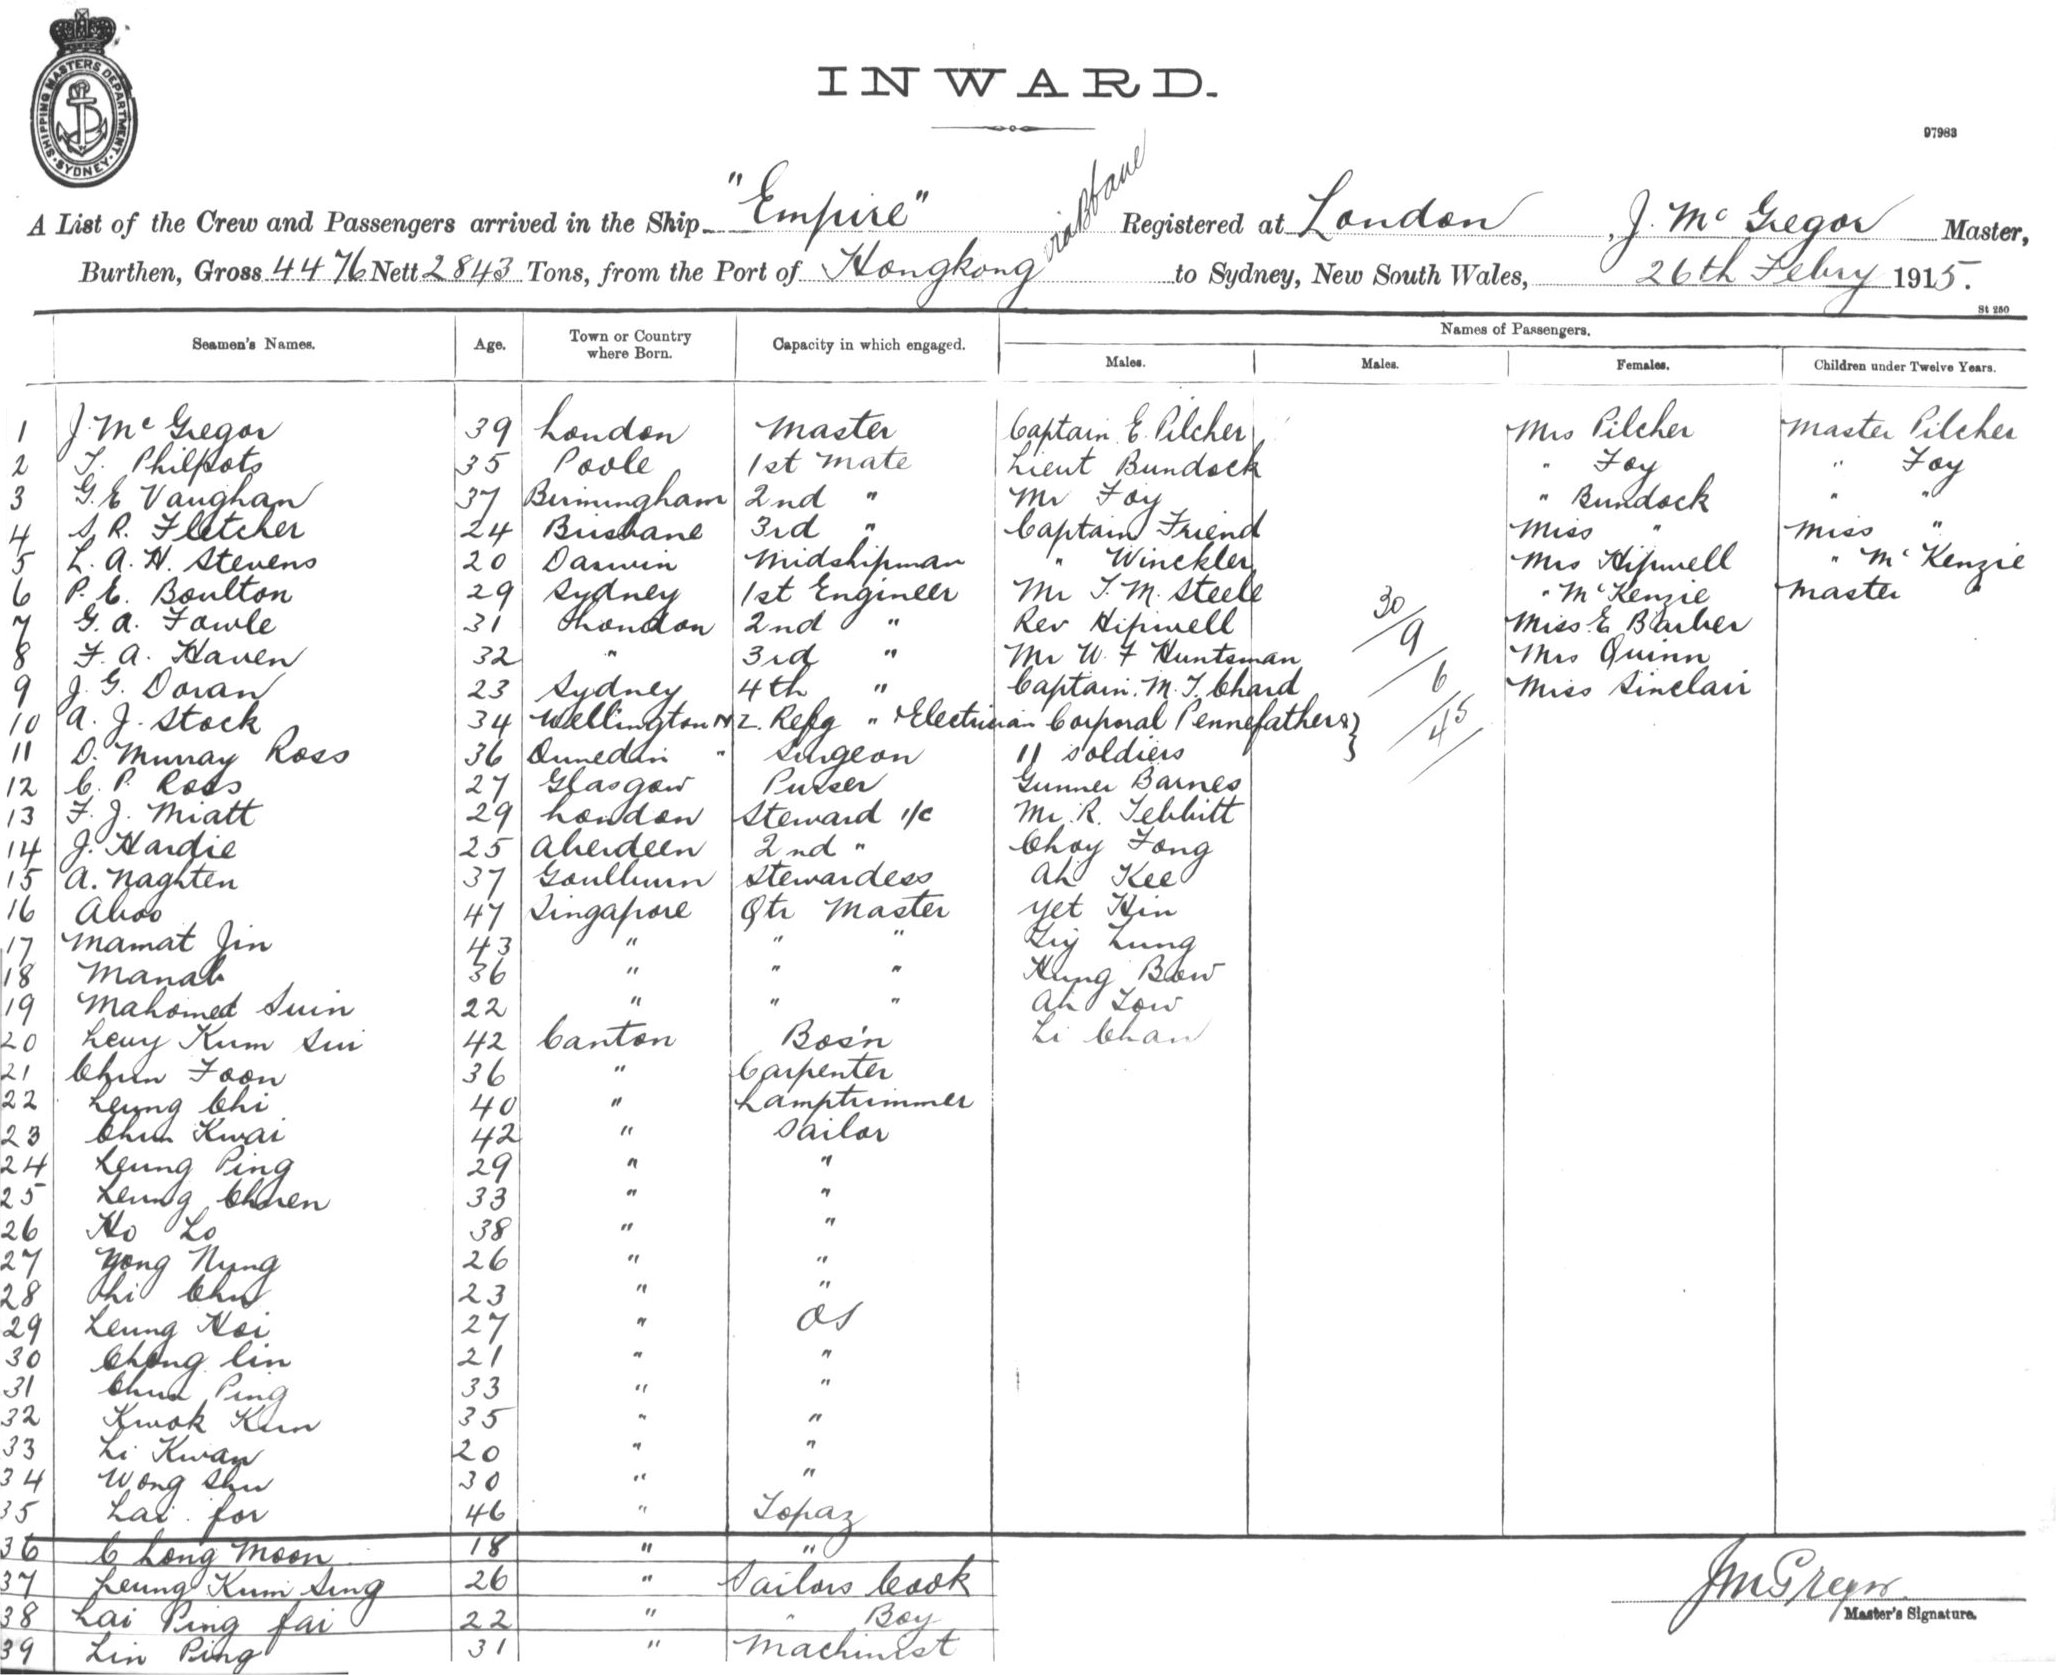 SHIPPING MASTERS DEPARTMENT · SYDNEY ·
INWARD.
97983
A List of the Crew and Passengers arrived in the Ship "Empire" via Bbane Registered at London, J. McGregor Master,
Burthen, Gross 4476 Nett 2843 Tons, from the Port of Hongkong to Sydney, New South Wales, 26th Febry 1915.
St 250
Seamen's Names. Age. Town or Country where Born. Capacity in which engaged. Names of Passengers.
Males. Males. Females. Children under Twelve Years.
1 J. McGregor 39 London Master Captain E. Pilcher Mrs Pilcher Master Pilcher
2 T. Philpots 35 Poole 1st Mate Lieut Bundock " Foy " Foy
3 G. E Vaughan 37 Birmingham 2nd " Mr Foy " Bundock " "
4 S. R. Fletcher 24 Brisbane 3rd " Captain Friend Miss " Miss "
5 L. A. H. Stevens 20 Darwin Midshipman " Winckler Mrs Hipwell " McKenzie
6 P. E. Boulton 29 Sydney 1st Engineer Mr T. M. Steele " McKenzie Master "
7 G. A. Fowle 31 London 2nd " Rev Hipwell 30/9 Miss E Barber
8 F. A. Haven 32 " 3rd " Mr W. F Huntsman Mrs Quinn
9 J. G. Doran 23 Sydney 4th " Captain. M. J. Chard /6 Miss Sinclair
10 A. J. Stock 34 Wellington NZ. Refg " & Electrician Corporal Pennefather & } /45
11 D. Murray Ross 36 Dunedin " Surgeon 11 soldiers
12 C. P. Ross 27 Glasgow Purser Gunner Barnes
13 F. J. Miatt 29 London Steward i/c Mr. R. Tebbitt
14 J. Hardie 25 Aberdeen 2nd " Choy Fong
15 A. Naghten 37 Goulburn Stewardess Ah Kee
16 Aboo 47 Singapore Qtr Master Yet Hin
17 Mamat Jin 43 " " " Lung
18 Manab 36 " " " Hung Bow
19 Mahomed Suin 22 " " " Ah Low
20 Leuy Kum Sui 42 Canton Bos'n Li Chan
21 Chun Foon 36 " Carpenter
22 Leung Chi 40 " Lamptrimmer
23 Chun Kwai 42 " Sailor
24 Leung Ping 29 " "
25 Leung Chuen 33 " "
26 Ho Lo 38 " "
27 Yong Nung 26 " "
28 Li Chu 23 " "
29 Leung Hoi 27 " OS
30 Chong lin 21 " "
31 Chun Ping 33 " "
32 Kwok Kum 35 " "
33 Li Kwan 20 " "
34 Wong Shu 30 " "
35 Lai for 46 " Topaz
36 Chong Moon 18 " "
37 Leung Kum Sing 26 " Sailors Cook
38 Lai Ping fai 22 " " Boy
39 Lin Ping 31 " Machinist
JMcGregor
Master's Signature.